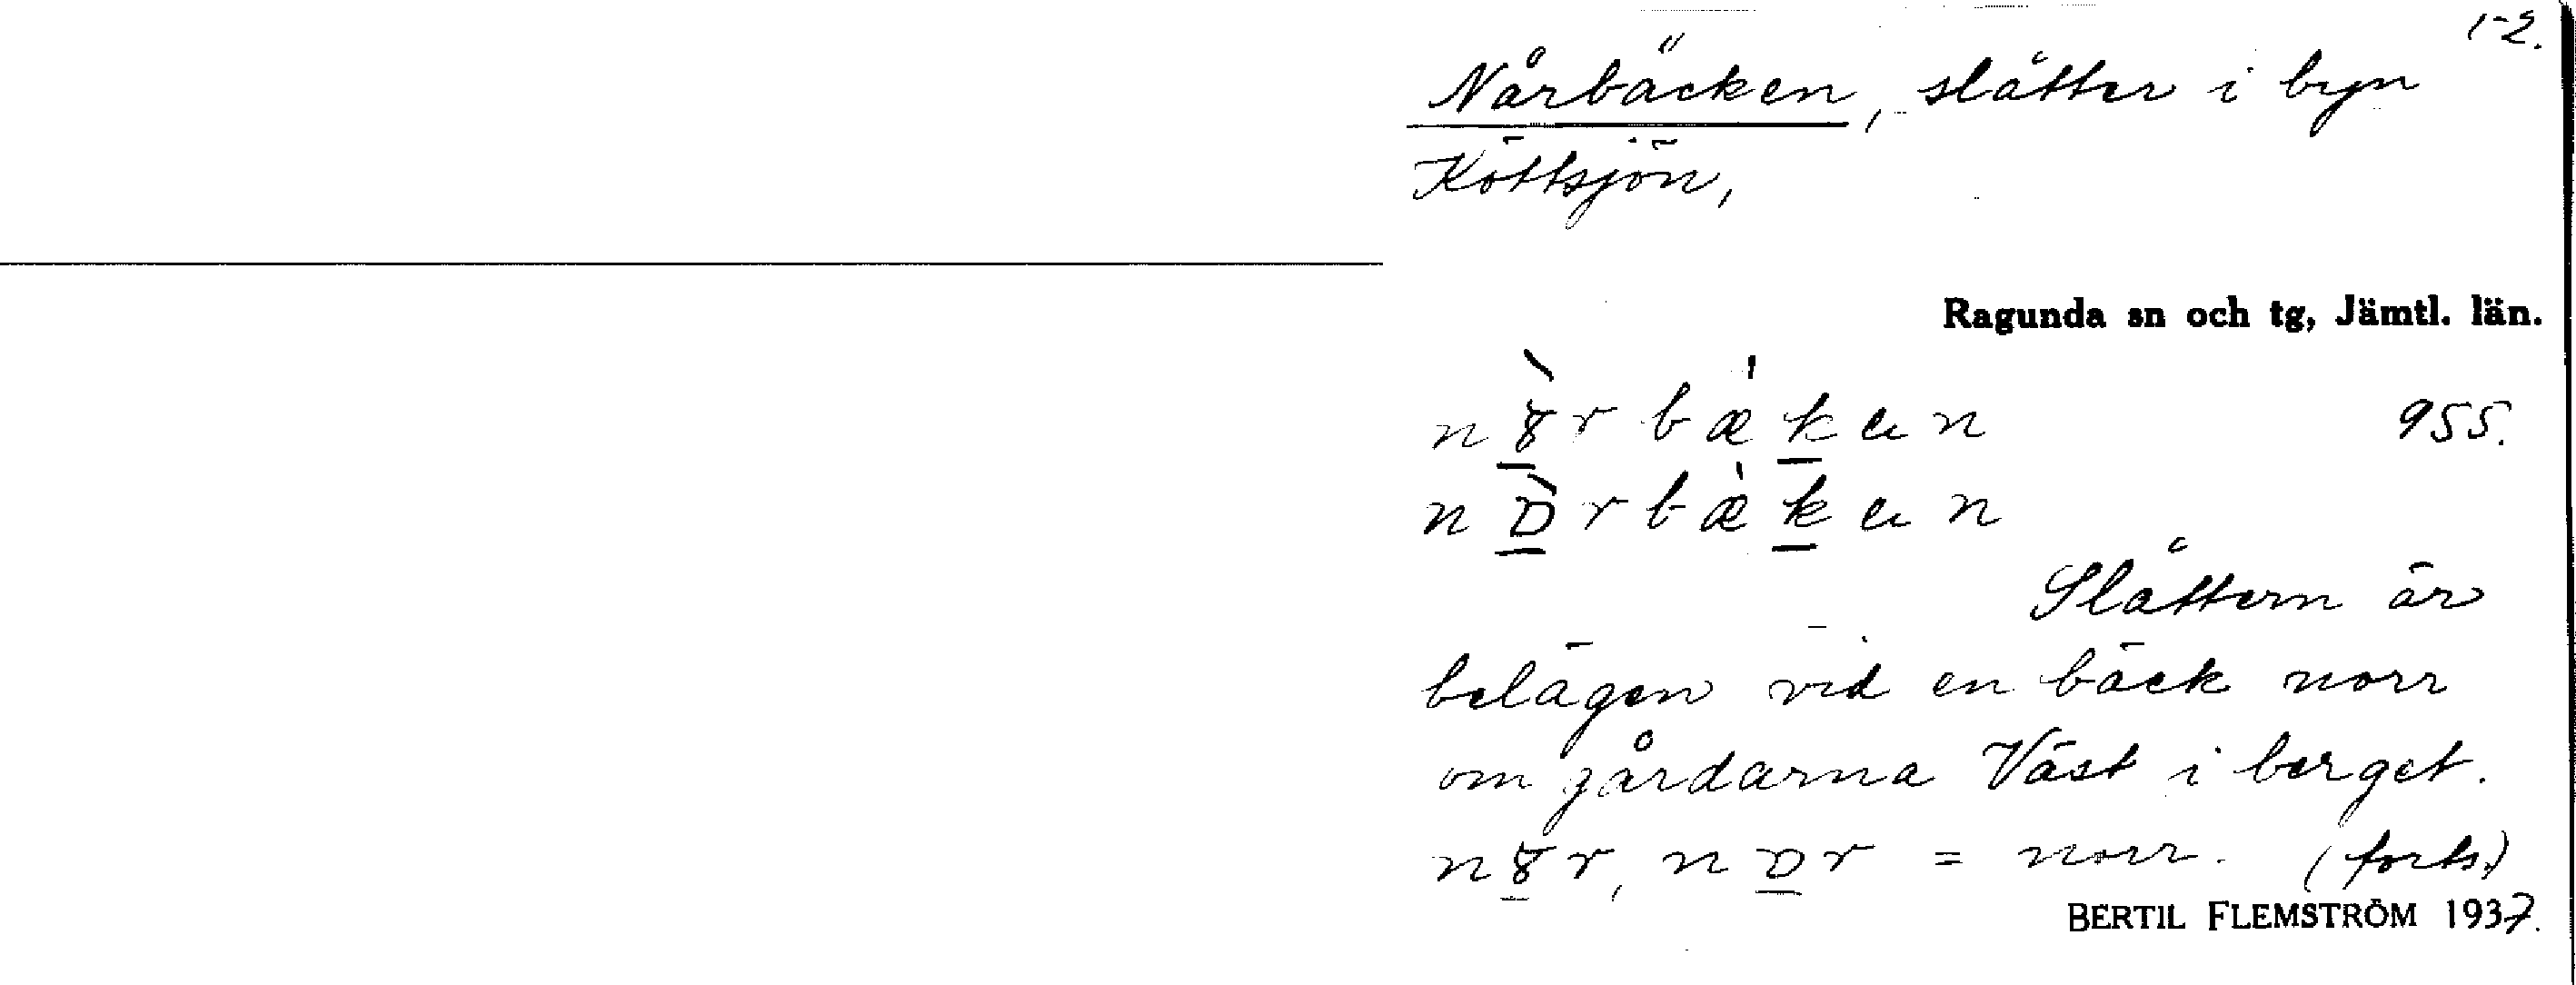 1-2.
Nårbäcken, slåtter i byn
Köttsjön,
Ragunda sn och tg, Jämtl. län.
955.
Slåttern är
belägen vid en bäck norr
om gårdarna Väst i berget.
= norr. (forts.)
BERTIL FLEMSTRÖM 1937.